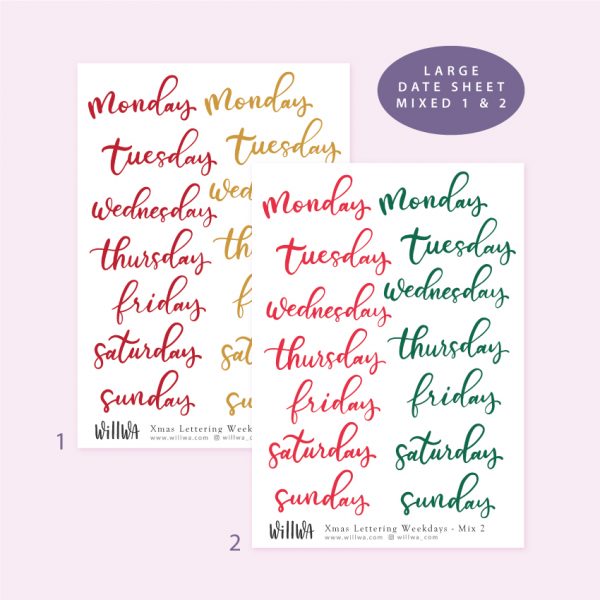 LARGE
DATE SHEET
MIXED 1 & 2
monday monday
tuesday tuesday
wednesday we
thursday thu
friday f
saturday sat
sunday su
WillWA Xmas Lettering Week
www.willwa.com willwa_c
1
monday monday
tuesday tuesday
wednesday wednesday
thursday thursday
friday friday
saturday saturday
sunday sunday
WillWA Xmas Lettering Weekdays - Mix 2
www.willwa.com willwa_com
2